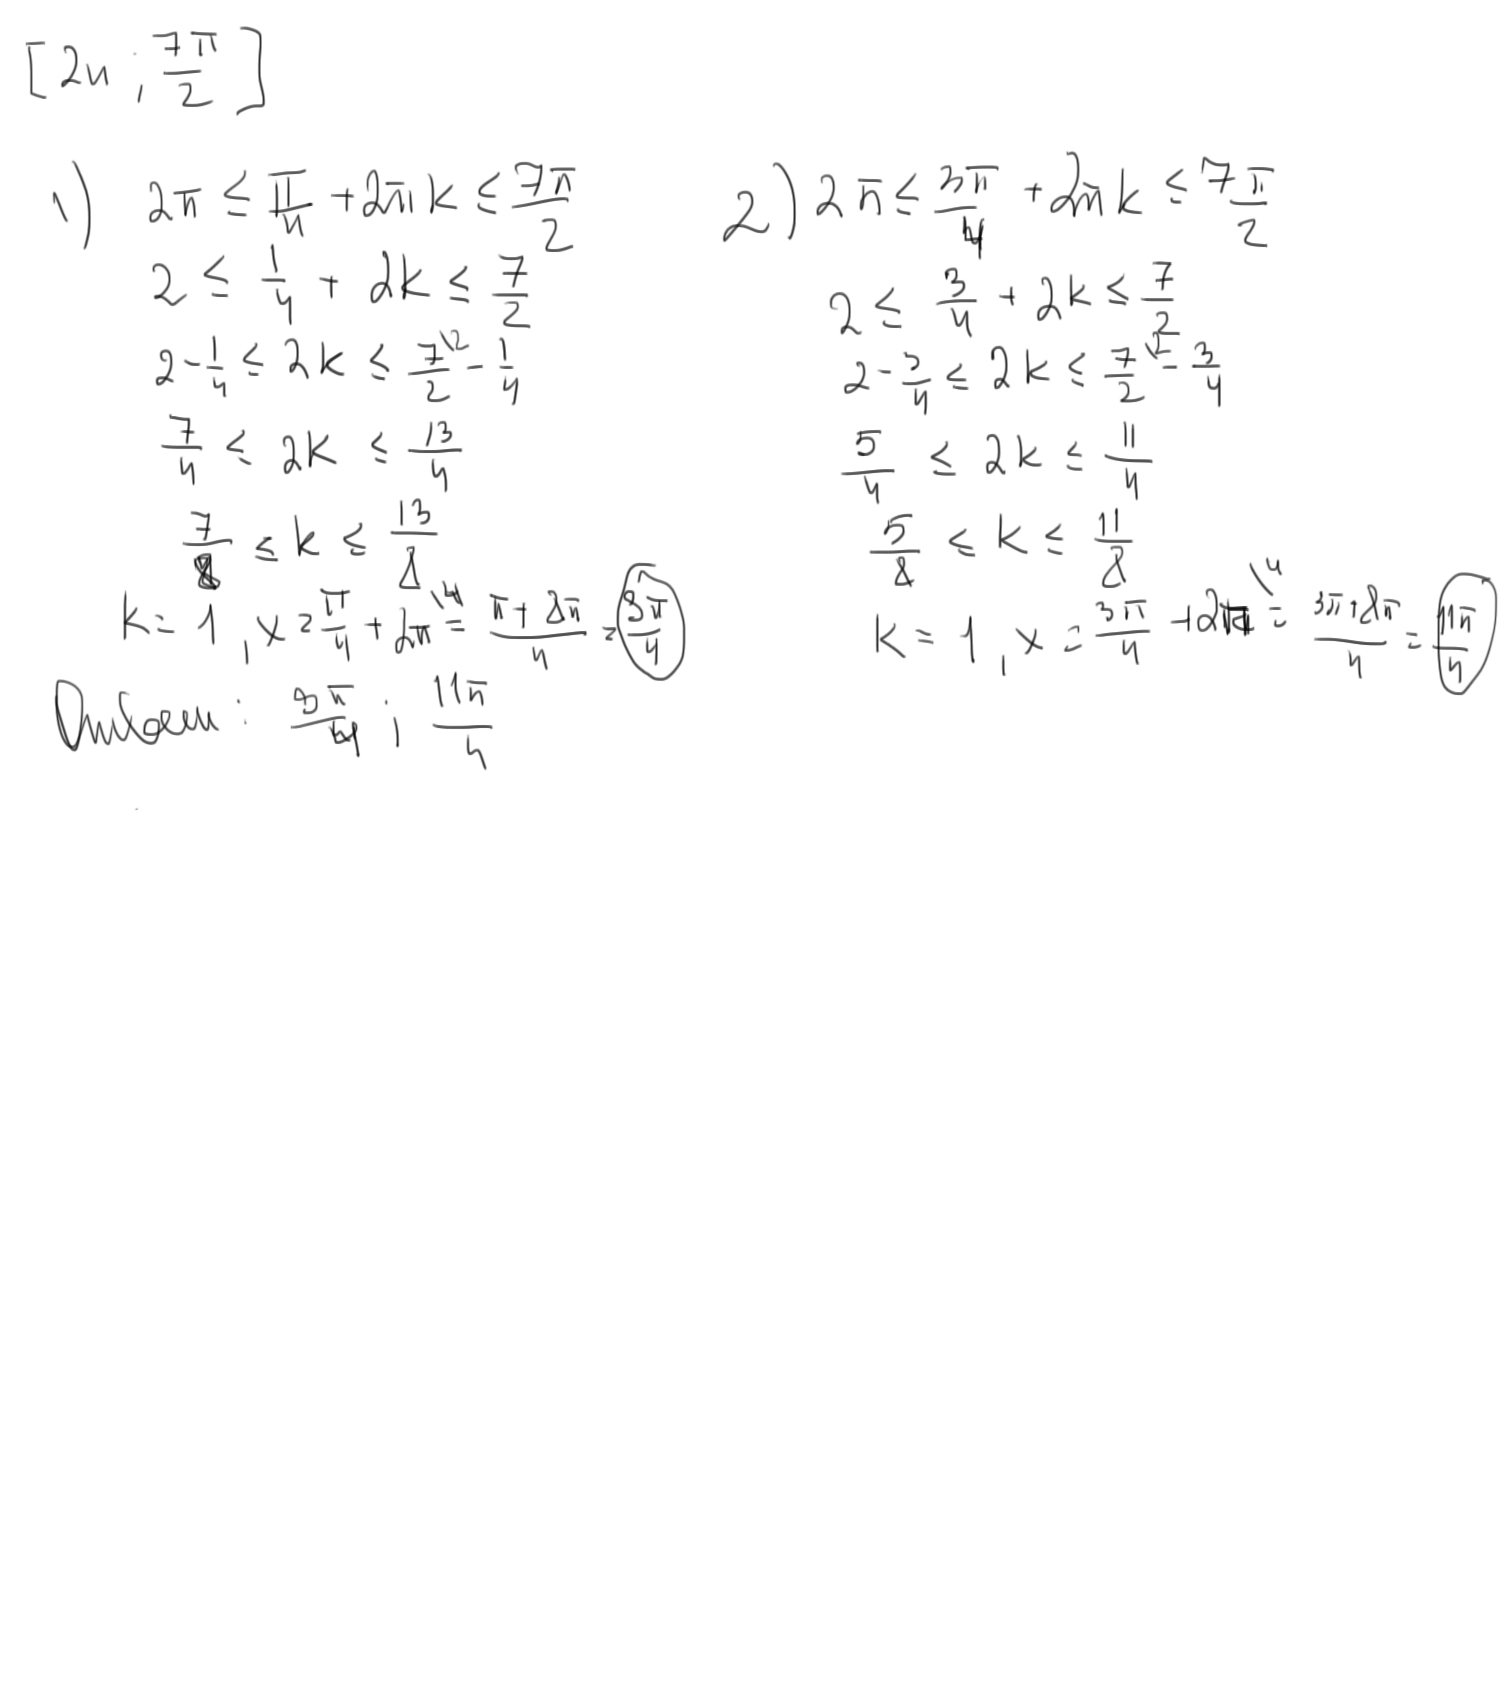 [2π ; 7π/2]
1) 2π ≤ π/4 + 2πk ≤ 7π/2
2 ≤ 1/4 + 2k ≤ 7/2
2 - 1/4 ≤ 2k ≤ 7/2\2 - 1/4
7/4 ≤ 2k ≤ 13/4
7/8 ≤ k ≤ 13/8
k = 1, x = π/4 + 2π\4 = π + 8π/4 = 9π/4
2) 2π ≤ 3π/4 + 2πk ≤ 7π/2
2 ≤ 3/4 + 2k ≤ 7/2
2 - 3/4 ≤ 2k ≤ 7/2\2 - 3/4
5/4 ≤ 2k ≤ 11/4
5/8 ≤ k ≤ 11/8
k = 1, x = 3π/4 + 2π\4 = 3π + 8π/4 = 11π/4
Ответ: 9π/4 ; 11π/4